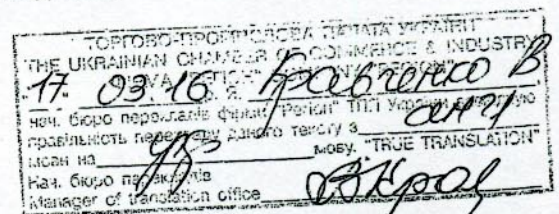 ТОРГОВО-ПРОМИСЛОВА ПАЛАТА УКРАЇНИ
THE UKRAINIAN CHAMBER OF COMMERCE & INDUSTRY
17. 03 16 Кравченко В
нач. бюро перекладів фірми "Регіон" ТПП України
правільність перекладу даного тексту з англ
мови на укр мову. "TRUE TRANSLATION"
Нач. бюро перекладів
Manager of translation office ВКрав